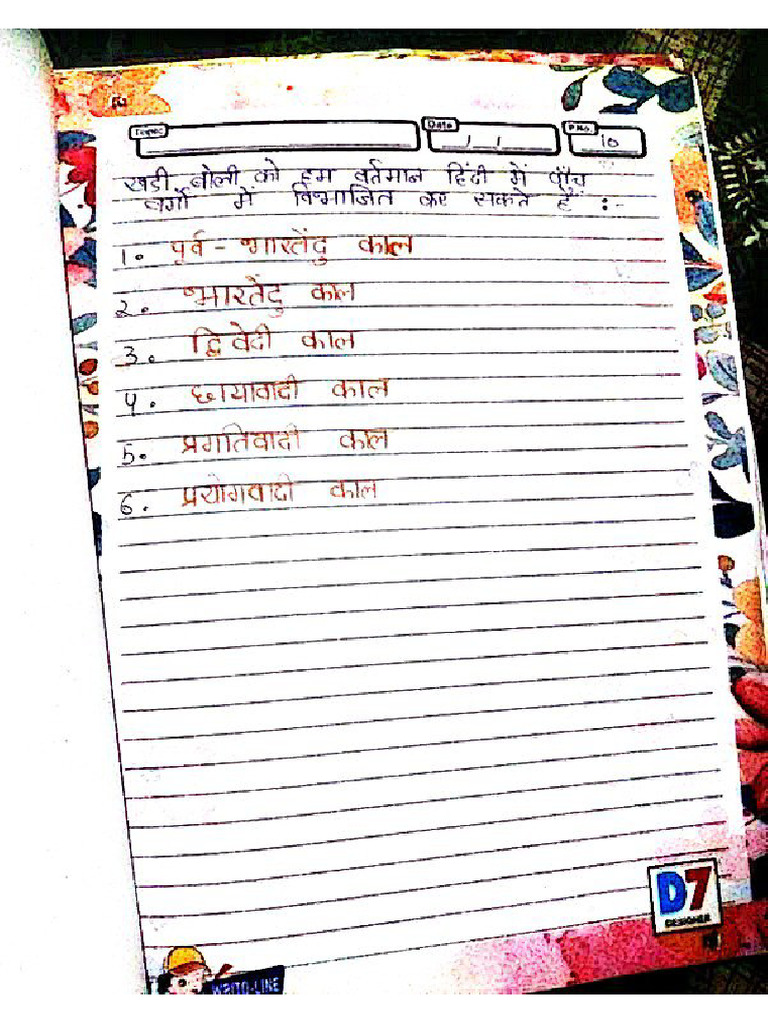 Date
P.No. 10
खडी बोली को हम वर्तमान हिंदी में पाँच
वर्गो में विभाजित कर सकते हैं :-
1. पूर्व - भारतेंदु काल
2. भारतेंदु काल
3. द्विवेदी काल
4. छायावादी काल
5. प्रगतिवादी काल
6. प्रयोगवादी काल
D7
DESIGNER